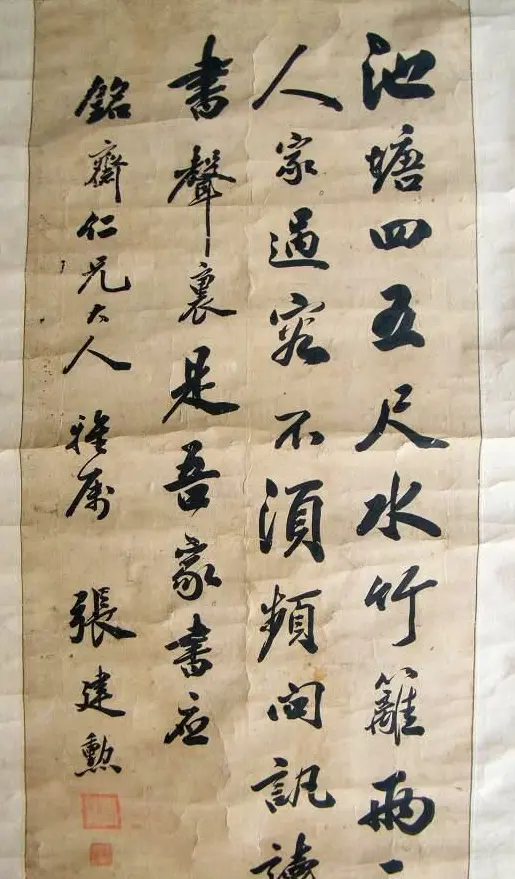 池塘四五尺水竹籬兩
人家過客不須頻問訊讀
書聲裏是吾家書应
銘齋仁兄大人 雅属 張建勳